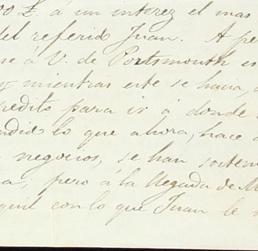 00 £ á un interez el mas
del referido Juan. A pe
se á V. de Portsmouth es
y mientras este se hacia,
pedito para ir á donde
endido lo que ahora, hace
negocios, se han sosten
a, pero á la llegada de M
quil con lo que Juan le